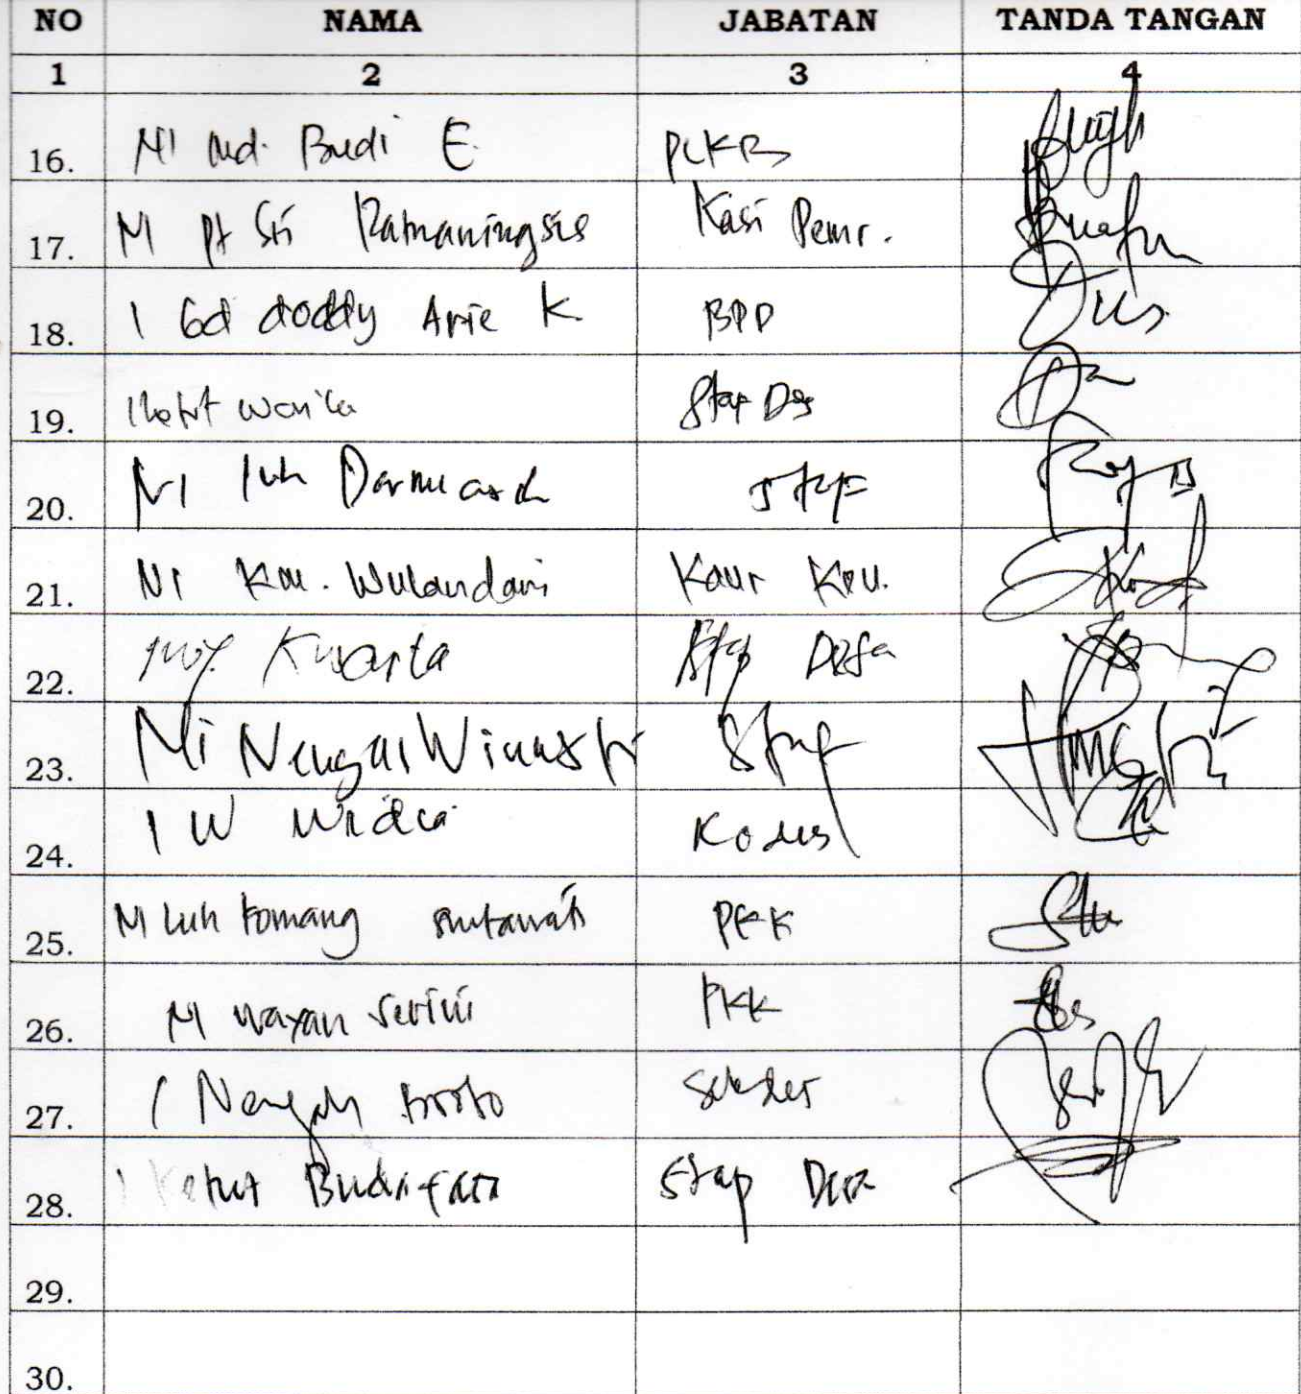 NO NAMA JABATAN TANDA TANGAN
1 2 3 4
16. Ni Md. Budi E. PLKB
17. Ni Pt Sri Ratnaningsih Kasi Pemr.
18. I Gd doddy Arie K. BPD
19. I Ketut Warita Stap Ds
20. Ni Luh Darmiasih Staf
21. Ni Km. Wulandari Kaur Keu.
22. Kwarta Stap Desa
23. Ni Nengah Winastri Staf
24. I W Widia Kadus
25. Ni Luh Komang PKK
26. Ni Wayan PKK
27. I Nengah Sekdes
28. I Ketut Stap Desa
29.
30.